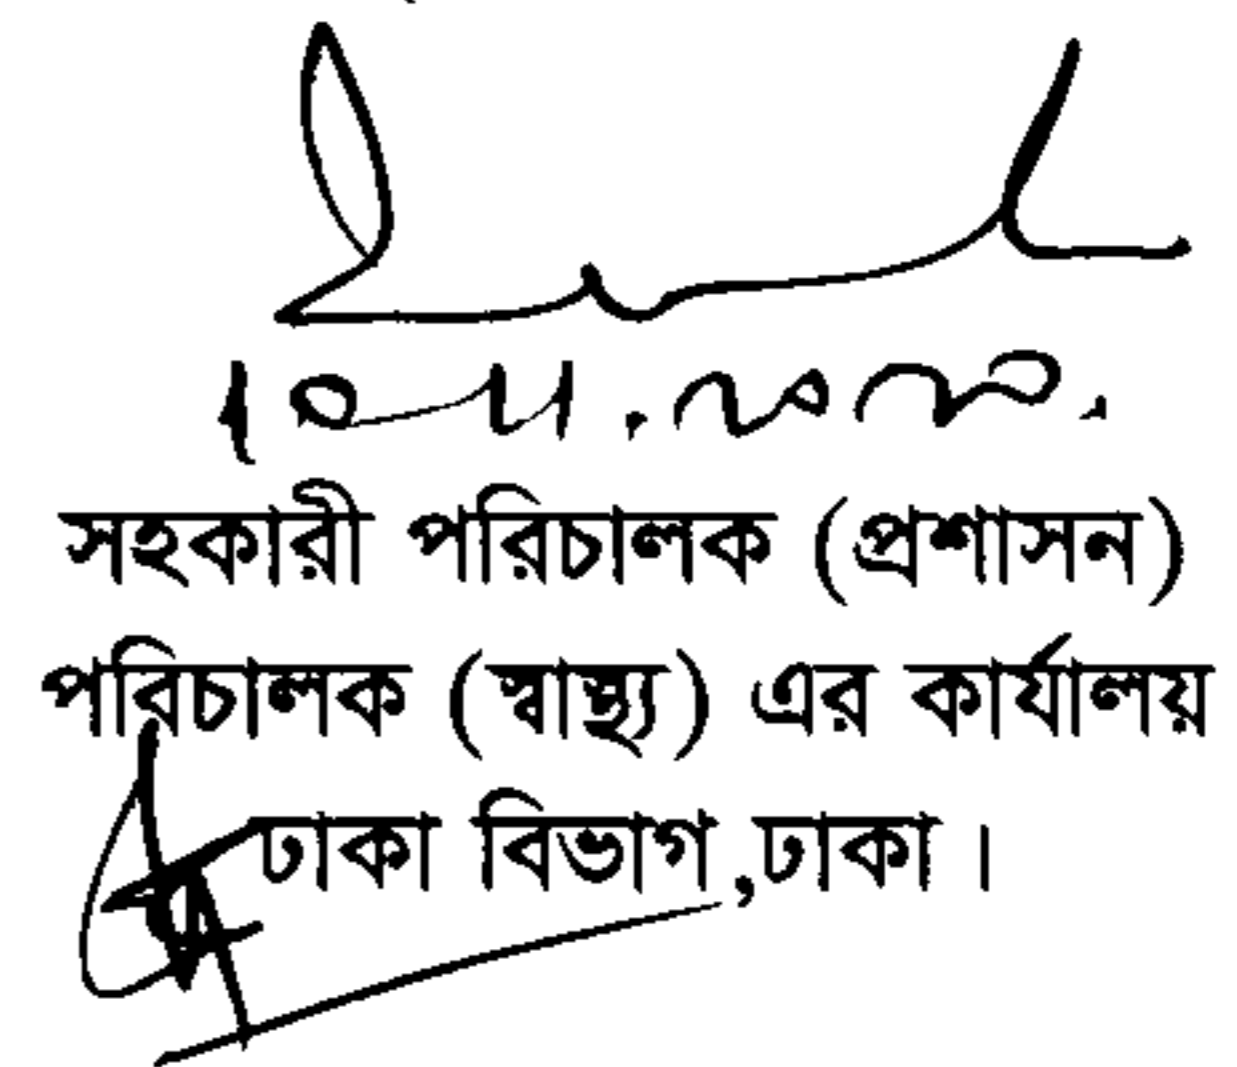 সহকারী পরিচালক (প্রশাসন)
পরিচালক (স্বাস্থ্য) এর কার্যালয়
ঢাকা বিভাগ,ঢাকা।